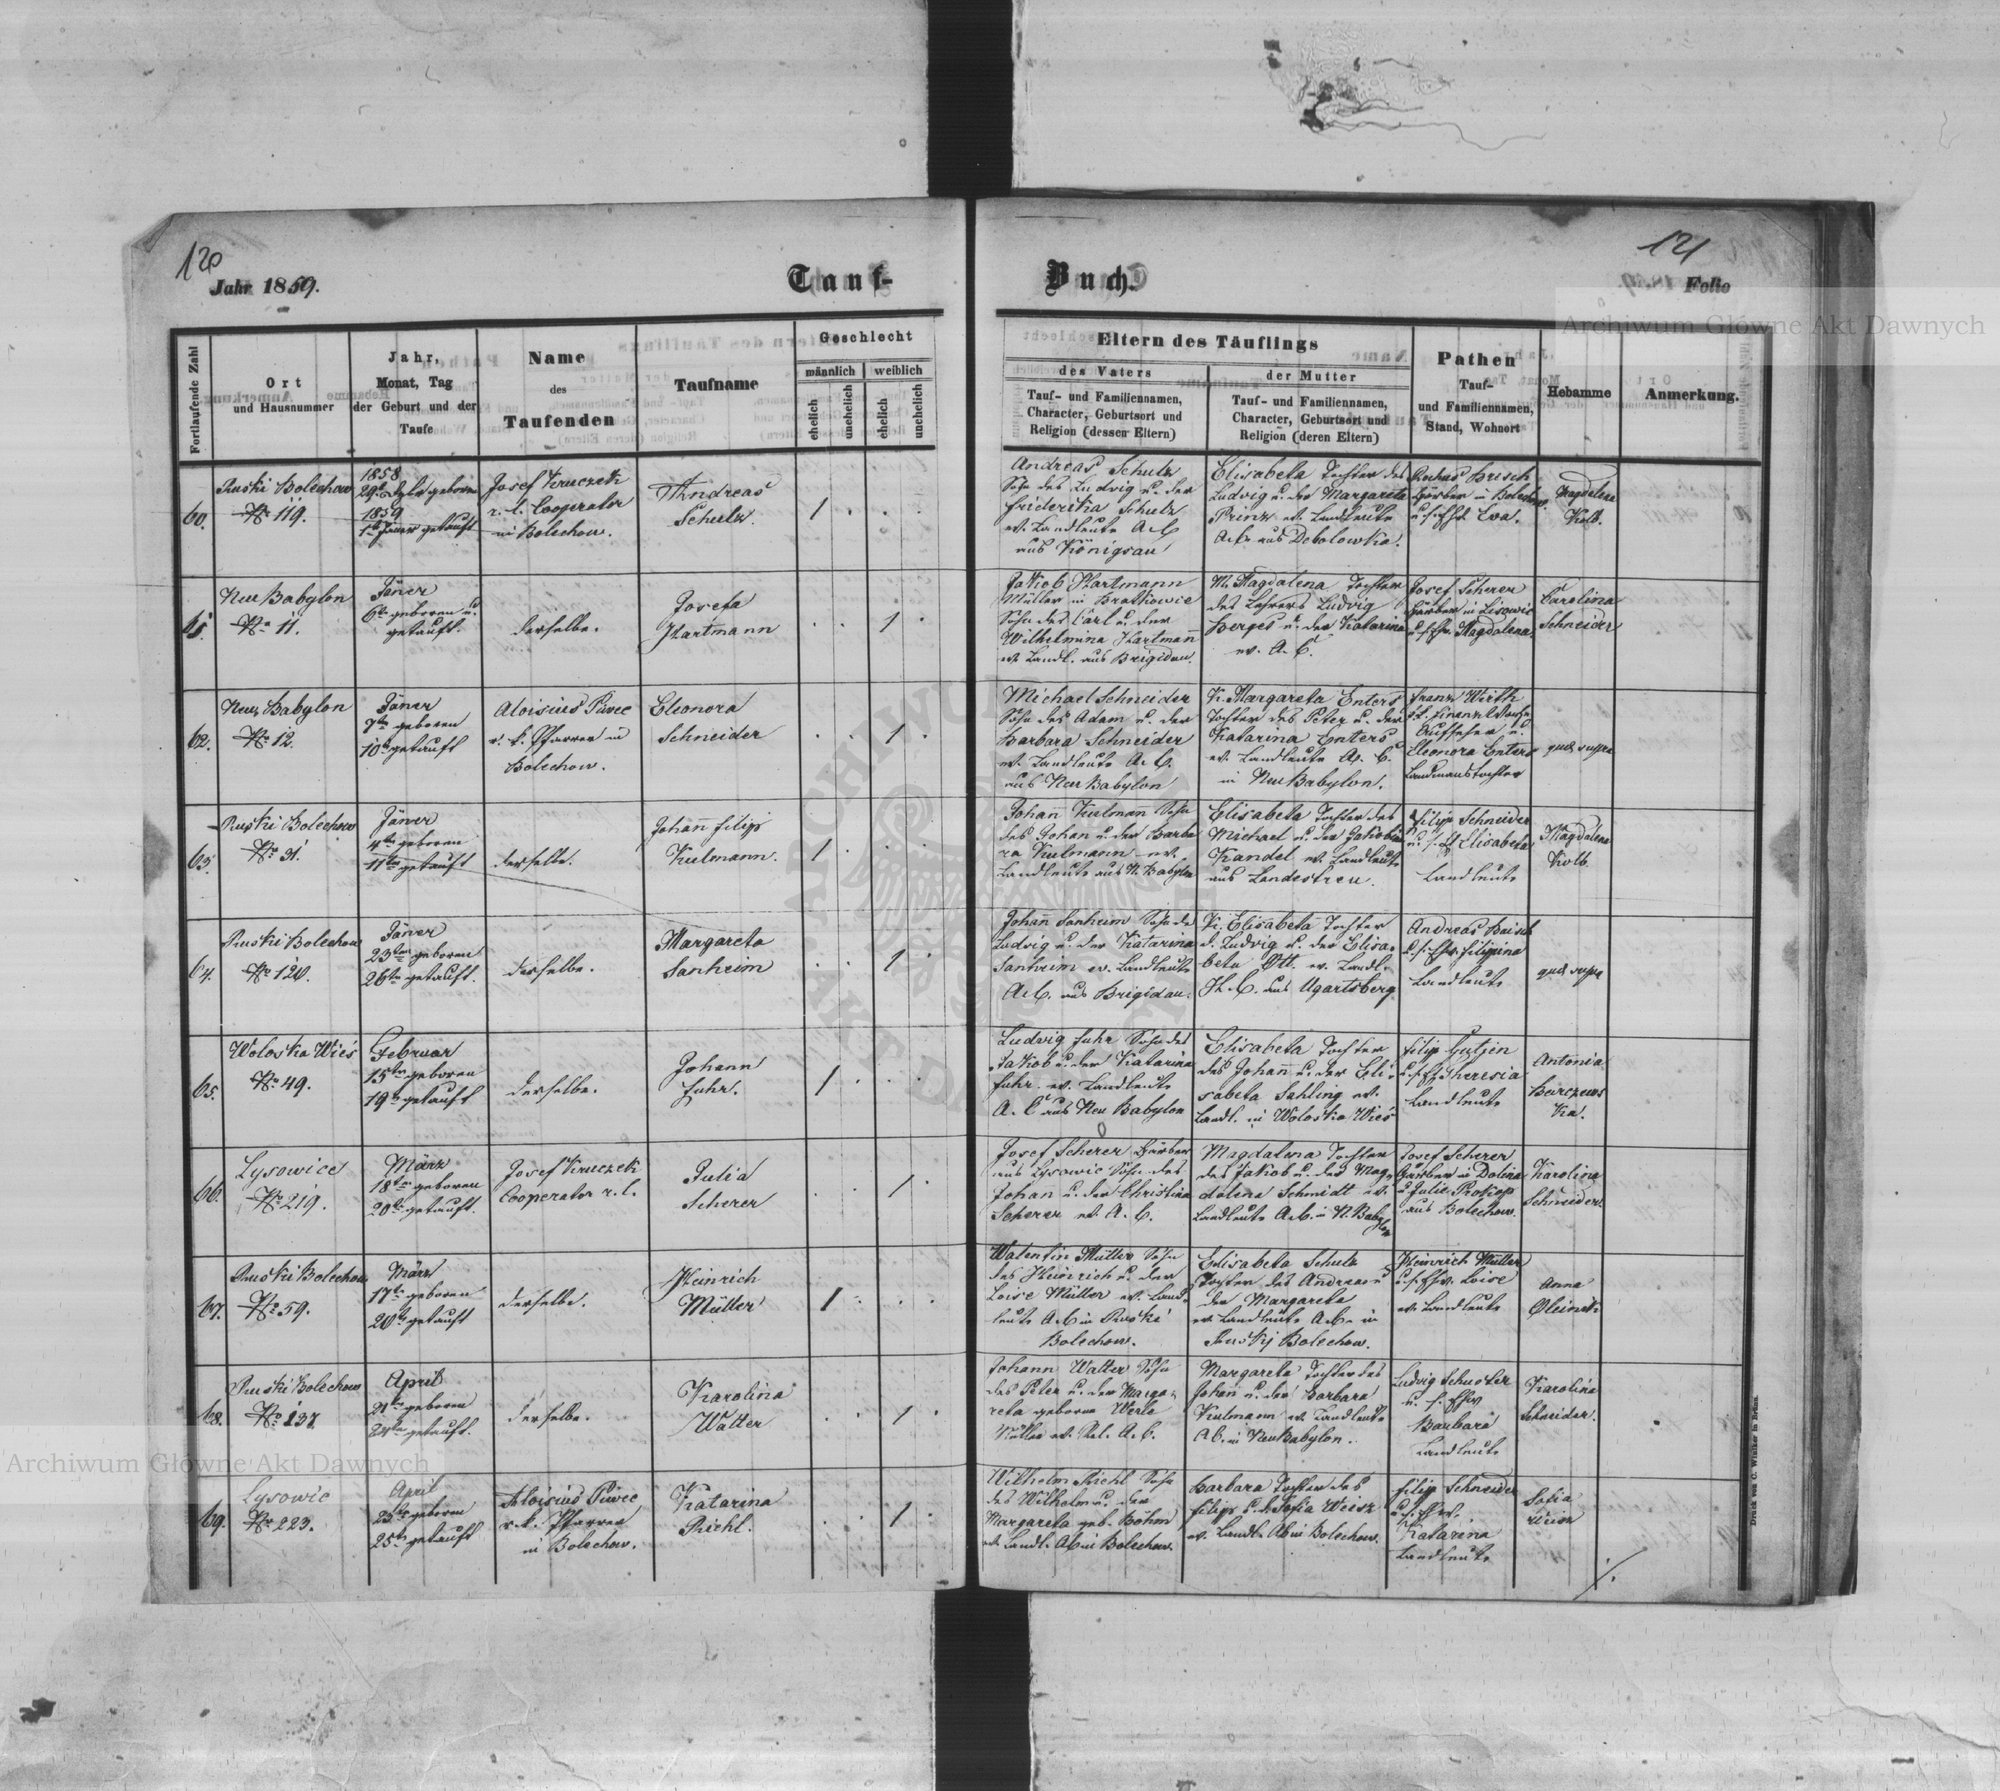 120
Jahr 1859.
Tauf-
Buch.
121
Folio
Archiwum Główne Akt Dawnych
Fortlaufende Zahl
Ort
und Hausnummer
Jahr,
Monat, Tag
der Geburt und der
Taufe
Name
des
Taufenden
Taufname
Geschlecht
männlich
weiblich
ehelich
unehelich
ehelich
unehelich
Eltern des Täuflings
des Vaters
Tauf- und Familiennamen,
Character, Geburtsort und
Religion (dessen Eltern)
der Mutter
Tauf- und Familiennamen,
Character, Geburtsort und
Religion (deren Eltern)
Pathen
Tauf-
und Familiennamen,
Stand, Wohnort
Hebamme
Anmerkung.
60.
Ruski Bolechow
No 119.
1858
29t geboren
1859
1t Jäner getauft
Josef Kruczek
r. l. Cooperator
in Bolechow.
Andreas
Schulz.
1
Andreas Schulz
Sohn des Ludwig u. der
Friderika Schulz
ev. Landleute A.C.
aus Königsau
Elisabeta Tochter des
Ludwig u. der Margareta
Prinz ev. Landleute
A.C. aus Dobolowka.
Gärber in Bolechow
Eva.
Magdalena
Kolb.
61.
Neu Babylon
No 11.
Jäner
6ten geboren u.
getauft.
derselbe.
Josefa
Hartmann
1
Jakob Hartmann
Müller in Bratkowie
Sohn des Carl u. der
Wilhelmina Hartmann
ev. Landl. aus Brigidau.
M. Magdalena Tochter
des Lehrers Ludwig
Berges u. der Katarina
ev. A.C.
Josef Scherer
Gärber in Lisowic
Magdalena.
Carolina
Schneider
62.
Neu Babylon
No 12.
Jäner
7ten geboren
10t getauft
Aloisius Püvec
r. l. Pfarrer in
Bolechow.
Eleonora
Schneider
1
Michael Schneider
Sohn des Adam u. der
Barbara Schneider
ev. Landleute A.C.
aus Neu Babylon
K. Margareta Enters
Tochter des Peter u. der
Katarina Enters
ev. Landleute A. C.
in Neu Babylon.
Franz Wirth
Aufseher u.
Eleonora Enters
Landmanstochter
quae supra
63.
Ruski Bolechow
No 31.
Jäner
4ten geboren
11ten getauft
derselbe.
Johann Filip
Kulmann.
1
Johann Kulmann Sohn
des Johan u. der Barba
ra Kulmann ev.
Landleute aus N. Babylon
Elisabeta Tochter des
Michael u. der Jakobina
Kandel ev. Landleute
aus Landestreu.
Filip Schneider
Elisabeta
Landleute
Magdalena
Kolb
64.
Ruski Bolechow
No 120.
Jäner
23ten geboren
26ten getauft.
derselbe.
Margareta
Sanheim
1
Johann Sanheim Sohn de
Ludwig u. der Katarina
Sanheim ev. Landleute
A.C. aus Brigidau.
K. Elisabeta Tochter
d. Ludwig u. der Elisa-
beta Ott. ev. Landl.
H. C. aus Ugartsberg
Andreas Baisch
Filipina
Landleute
quae supra
65.
Woloska Wieś
No 49.
Februar
15ten geboren
19t getauft
derselbe.
Johann
Fuhr.
1
Ludwig Fuhr Sohn des
Jakob u. der Katarina
Fuhr. ev. Landleute
A. C aus Neu Babylon
Elisabeta Tochter
des Johann u. der Eli-
sabeta Sahling ev.
Landl. in Woloska Wieś
Filip Gutjen
Theresia
Landleute
Antonia
66.
Lysowice
No 219.
März
18ten geboren
20t getauft.
Josef Kruczek
Cooperator r. l.
Julia
Scherer
1
Josef Scherer Gärber
aus Lysowic Sohn des
Johan u. der Christina
Scherer ev. A. C.
Magdalena Tochter
des Jakob u. der Mag-
dalena Schmidt ev.
Landleute A.C. in N. Babylon
Josef Scherer
Gärber in Dolina
u. Julie Prokop
aus Bolechow.
Karolina
Schneider.
67.
Ruski Bolechow
No 59.
März
17t geboren
20t getauft
derselbe.
Heinrich
Müller
1
Walentin Müller Sohn
des Heinrich u. der
Loise Müller ev. Land-
leute A.C. in Ruski
Bolechow.
Elisabeta Schulz
Tochter des Andreas u
der Margareta
ev. Landleute A.C. in
Ruskj Bolechow.
Heinrich Müller
Loise
ev. Landleute
Anna
Oleinik
68.
Ruski Bolechow
No 137
April
21t geboren
getauft.
derselbe.
Karolina
Walter
1
Johann Walter Sohn
des Peter u. der Marga-
reta geborne Werle
Müller ev. Rel. A.C.
Margareta Tochter des
Johann u. der Barbara
Kulmann ev. Landleute
A.C. in Neu Babylon.
Ludwig Schuster
u. s.
Barbara
Landleute
Karolina
Schneider.
69.
Lysowic
No 223.
April
23t geboren
25t getauft
Aloisius Püvec
r. l. Pfarrer
in Bolechow.
Katarina
Richl.
1
Wilhelm Richl Sohn
des Wilhelm u. der
Margareta geb. Böhm
ev. Landl. A.C. in Bolechow.
Barbara Tochter des
Filip u. d. Sofia Weisz
ev. Landl. A.C. in Bolechow.
Filip Schneider
Katarina
Landleute
Sofia
Weisz
Druck von C. Winiker in Brünn.
Archiwum Główne Akt Dawnych